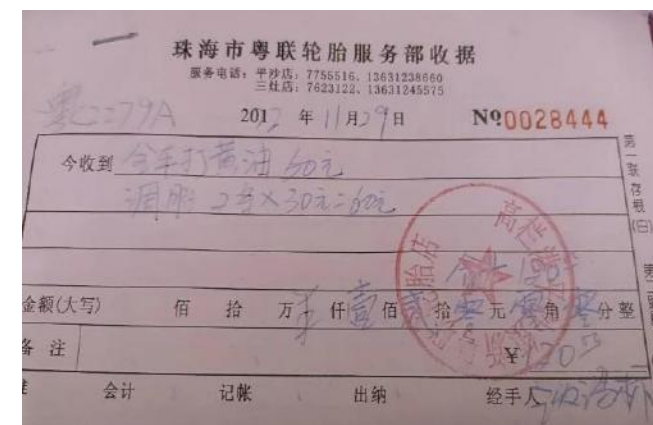 珠海市粤联轮胎服务部收据
服务电话：平沙店：7755516、13631238660
三灶店：7623122、13631245575
粤C2279A 2017年11月29日 №0028444
今收到 全车打黄油 60元
调胎 2条×30元=60元
金额(大写) 佰 拾 万 仟 壹 佰 贰 拾 零 元 零 角 零 分 整
备 注 ¥120
会计 记帐 出纳 经手人
第一联存根(白)
高栏港
胎店